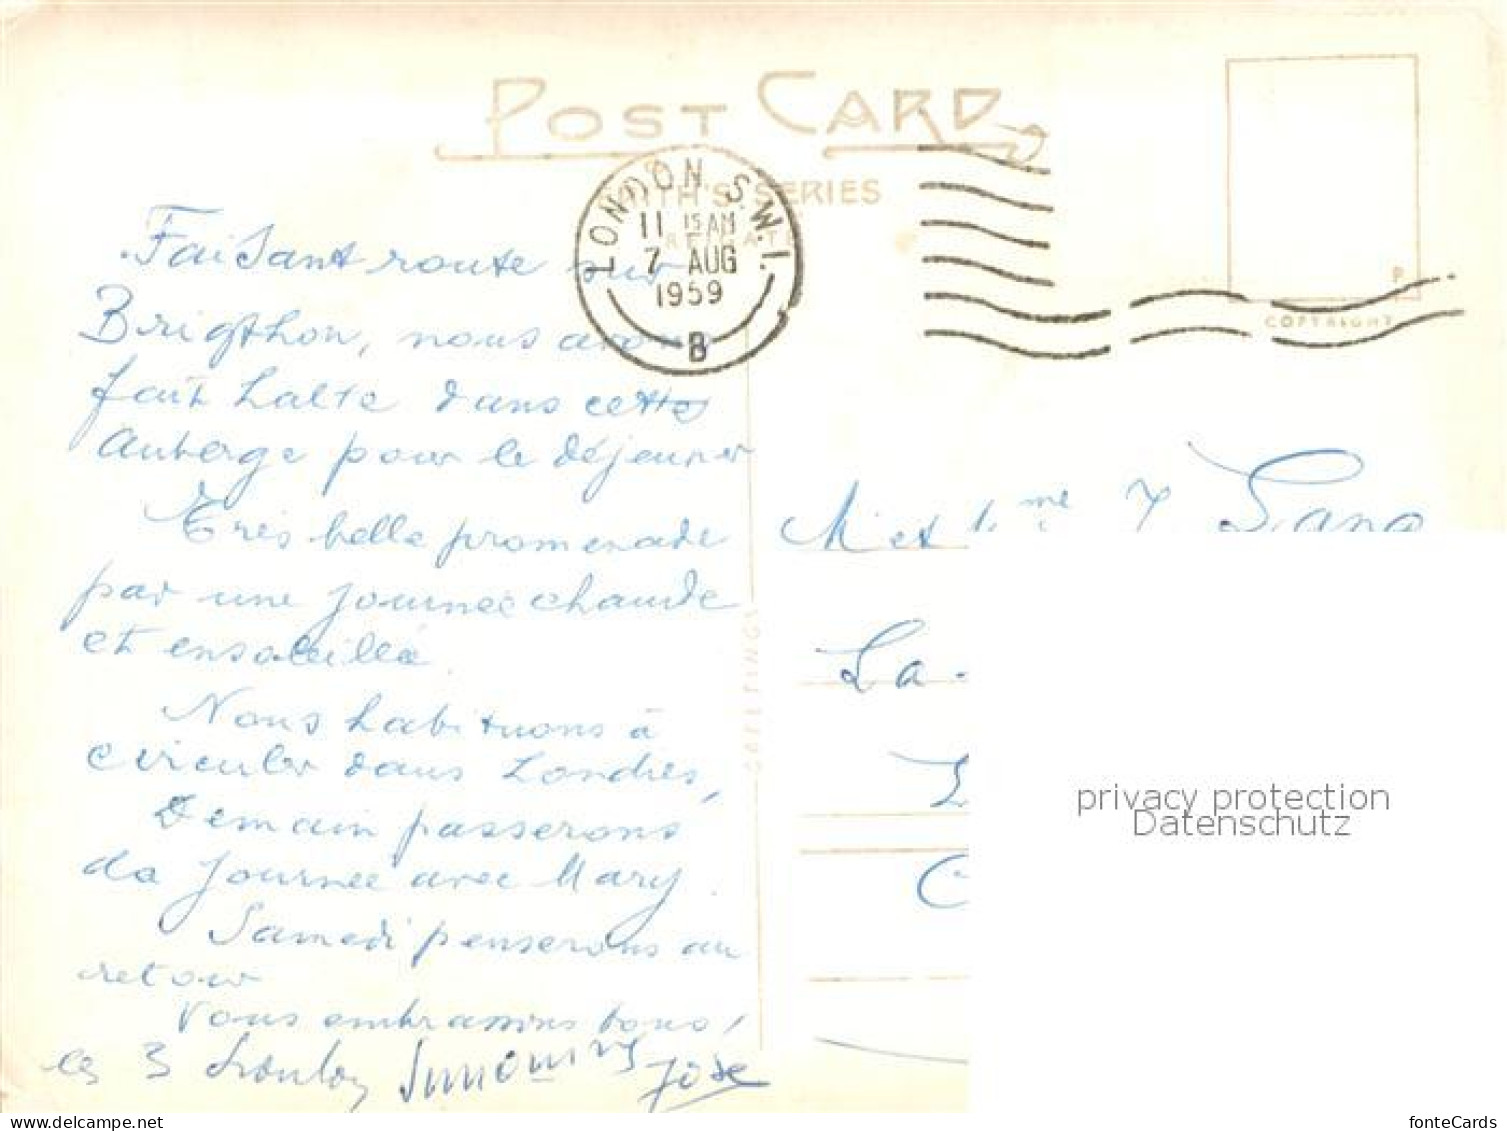 POST CARD
SERIES
LONDON S.W.1.
11 15 AM
7 AUG
1959
B
COPYRIGHT
Faisant route sur
Brigthon, nous avons
fait halte dans cette
auberge pour le déjeuner
Très belle promenade
par une journée chaude
et ensoleillée.
Nous habituons à
circuler dans Londres,
Demain passerons
la journée avec Mary.
Samedi penserons au
retour
Vous embrassons tous,
les 3
José
GREETINGS
M et Mme
La
L
C
privacy protection
Datenschutz
www.delcampe.net
fonteCards